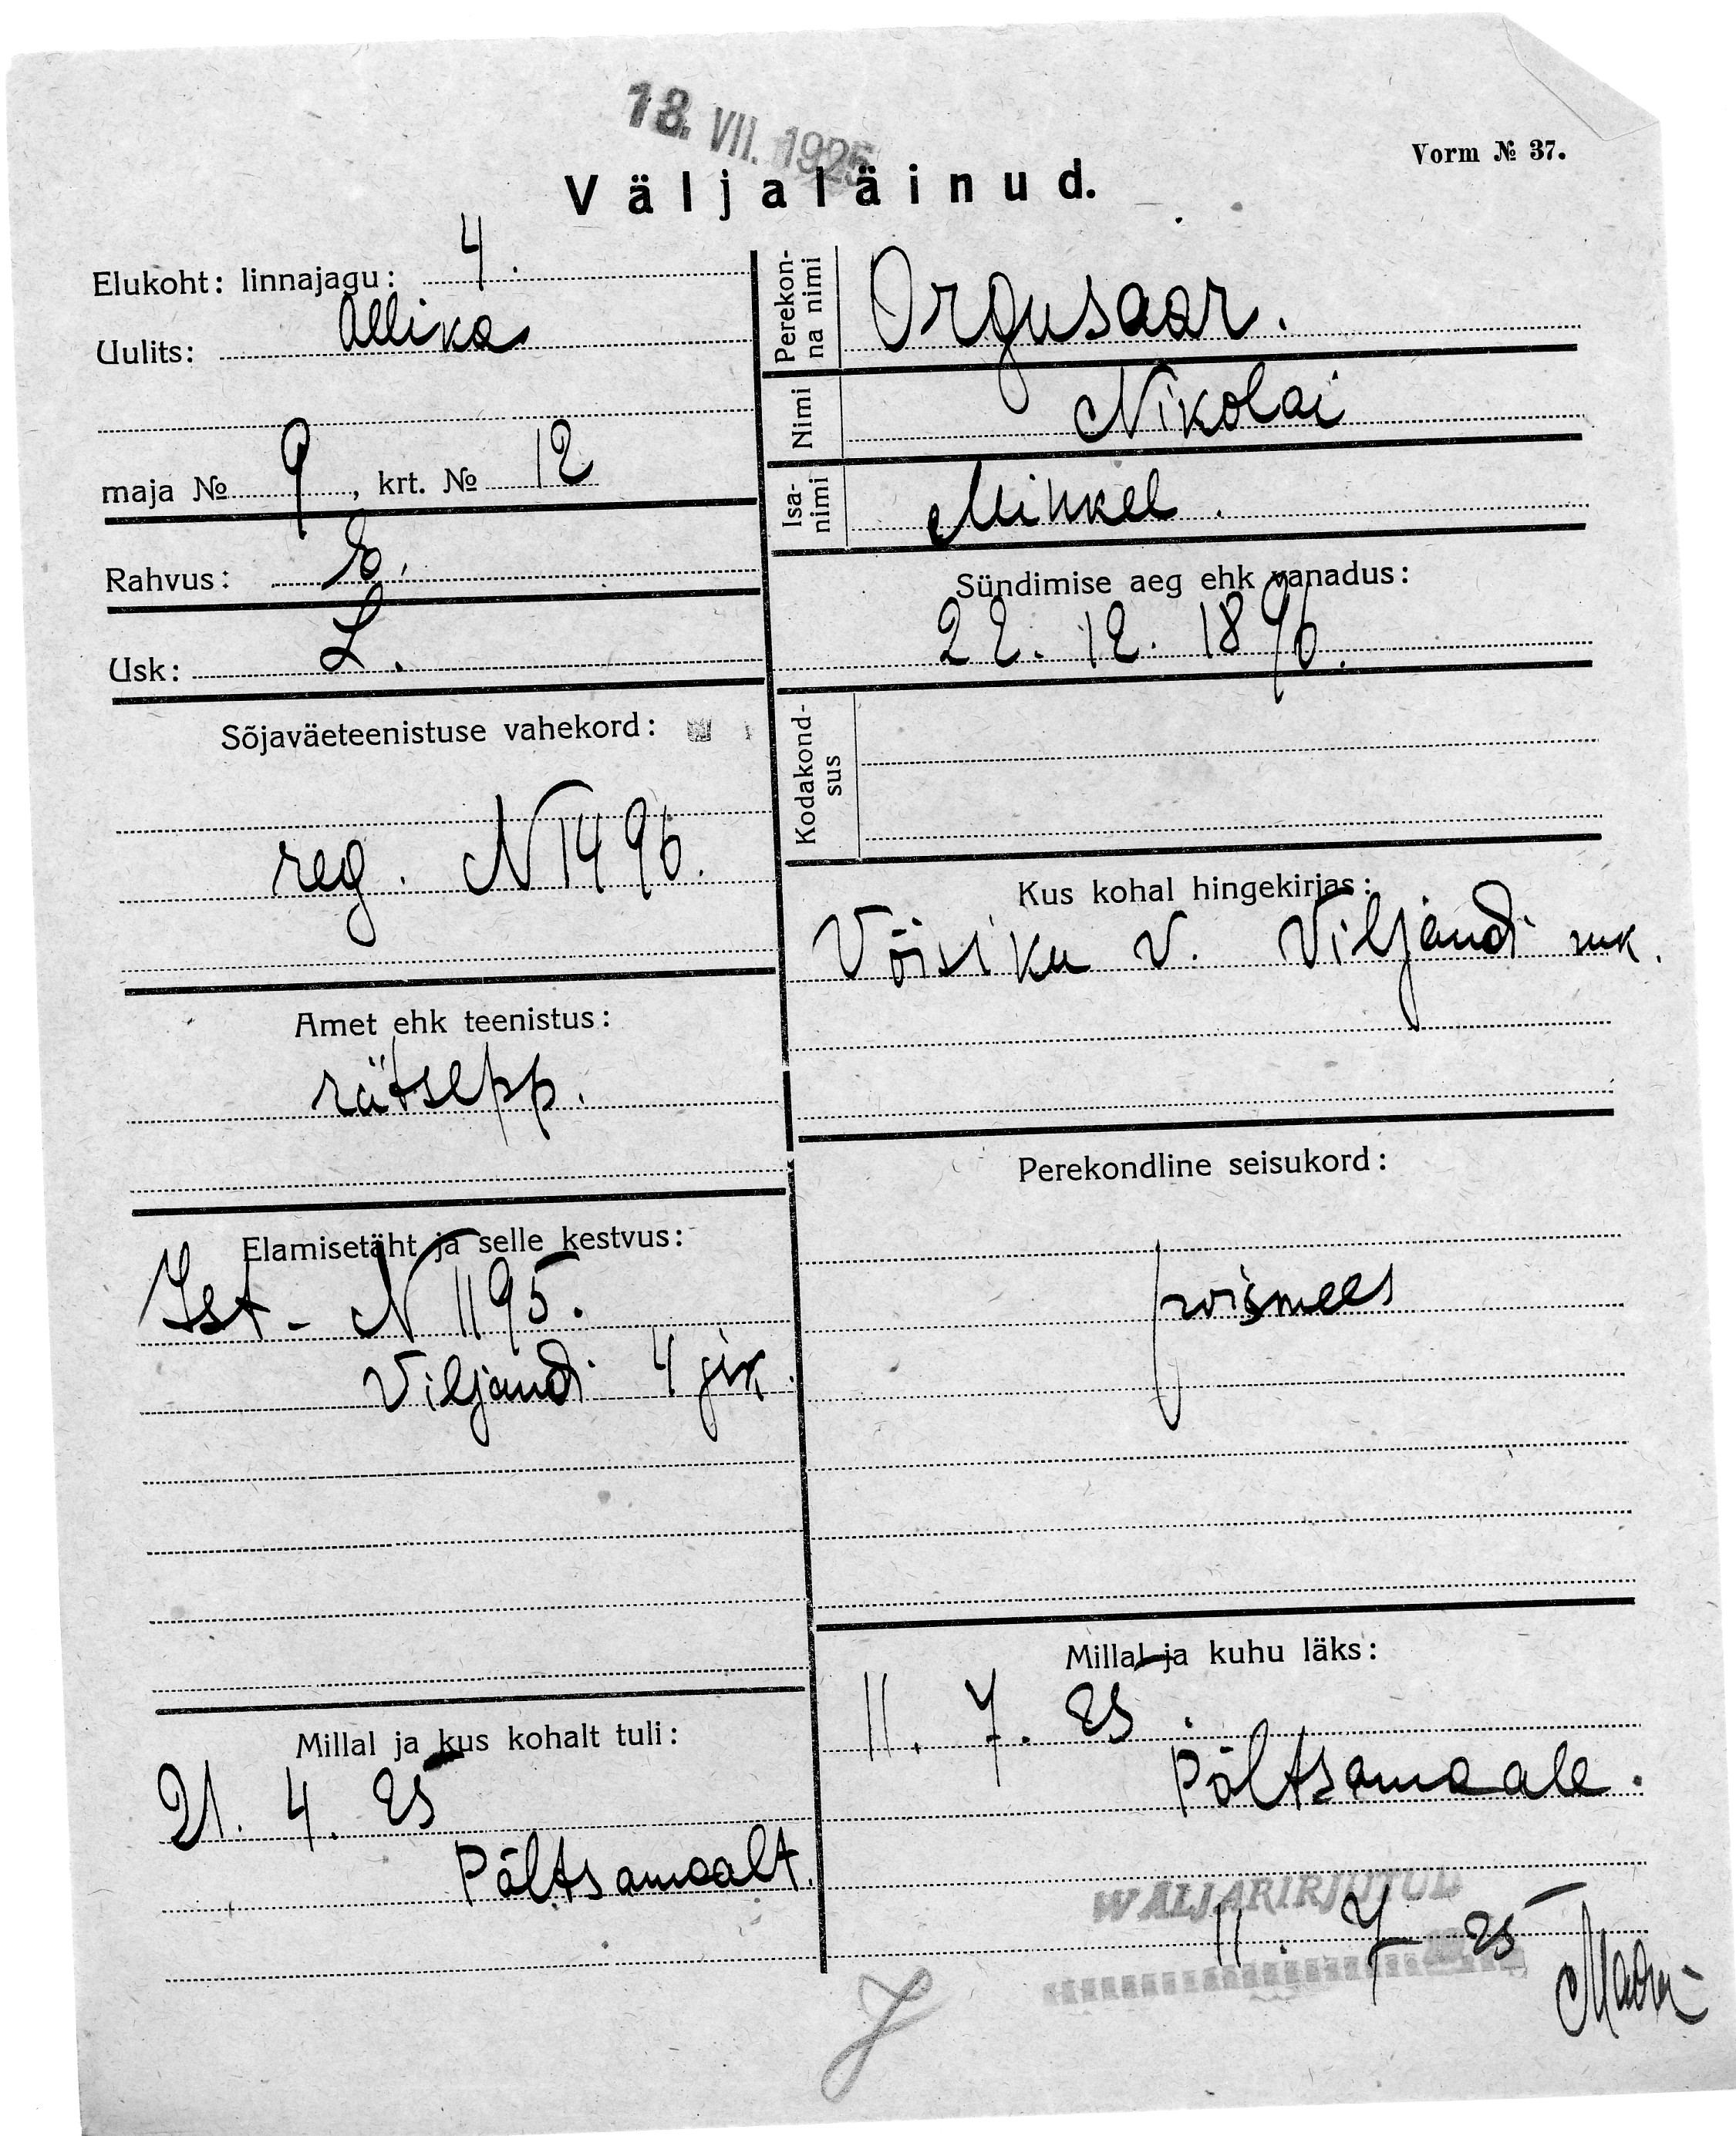 18. VII. 1925
Vorm № 37.
Väljaläinud.
Elukoht: linnajagu: 4.
Uulits: Allika
maja № 9, krt. № 12
Rahvus: E.
Usk: L.
Sõjaväeteenistuse vahekord:
reg. N 1496.
Amet ehk teenistus:
rätsepp.
Elamisetäht ja selle kestvus:
Ist - N 1195.
Viljandi 4 jsk.
Millal ja kus kohalt tuli:
21. 4. 25
Põltsamaalt.
Perekon-
na nimi Orgusaar.
Nimi Nikolai
Isa-
nimi Mihkel.
Sündimise aeg ehk vanadus:
22. 12. 1896.
Kodakond-
sus
Kus kohal hingekirjas:
Võisiku v. Viljandi mk.
Perekondline seisukord:
poismees
Millal ja kuhu läks:
11. 7. 25.
Põltsamaale.
WÄLJAKIRJUTUD
11. 7 25